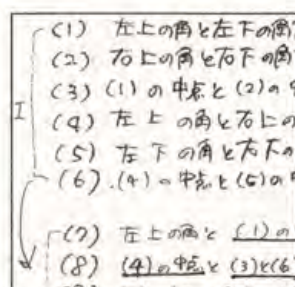 (1) 左上の角と左下の角
(2) 右上の角と右下の角
(3) (1)の中点と(2)の
(4) 左上の角と右上の
I
(5) 左下の角と右下の
(6) (4)の中点と(5)の
(7) 左上の角と(1)の
(8) (4)の中点と(3)と(6)